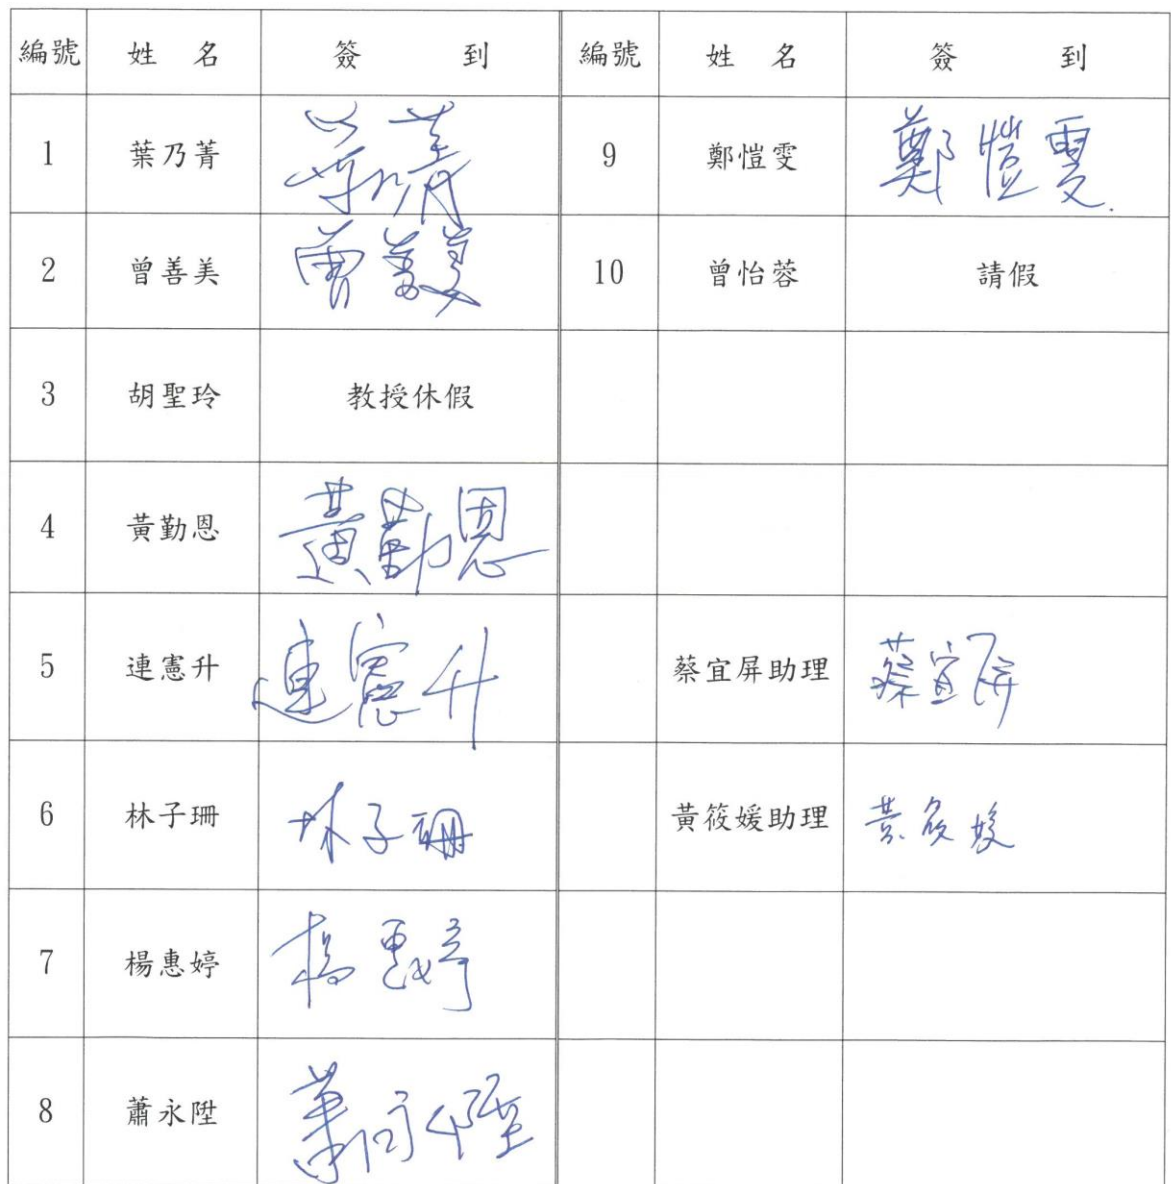 編號 姓 名 簽 到 編號 姓 名 簽 到
1 葉乃菁 葉乃菁 9 鄭愷雯 鄭愷雯
2 曾善美 曾善美 10 曾怡蓉 請假
3 胡聖玲 教授休假
4 黃勤恩 黃勤恩
5 連憲升 連憲升 蔡宜屏助理 蔡宜屏
6 林子珊 林子珊 黃筱媛助理 黃筱媛
7 楊惠婷 楊惠婷
8 蕭永陞 蕭永陞